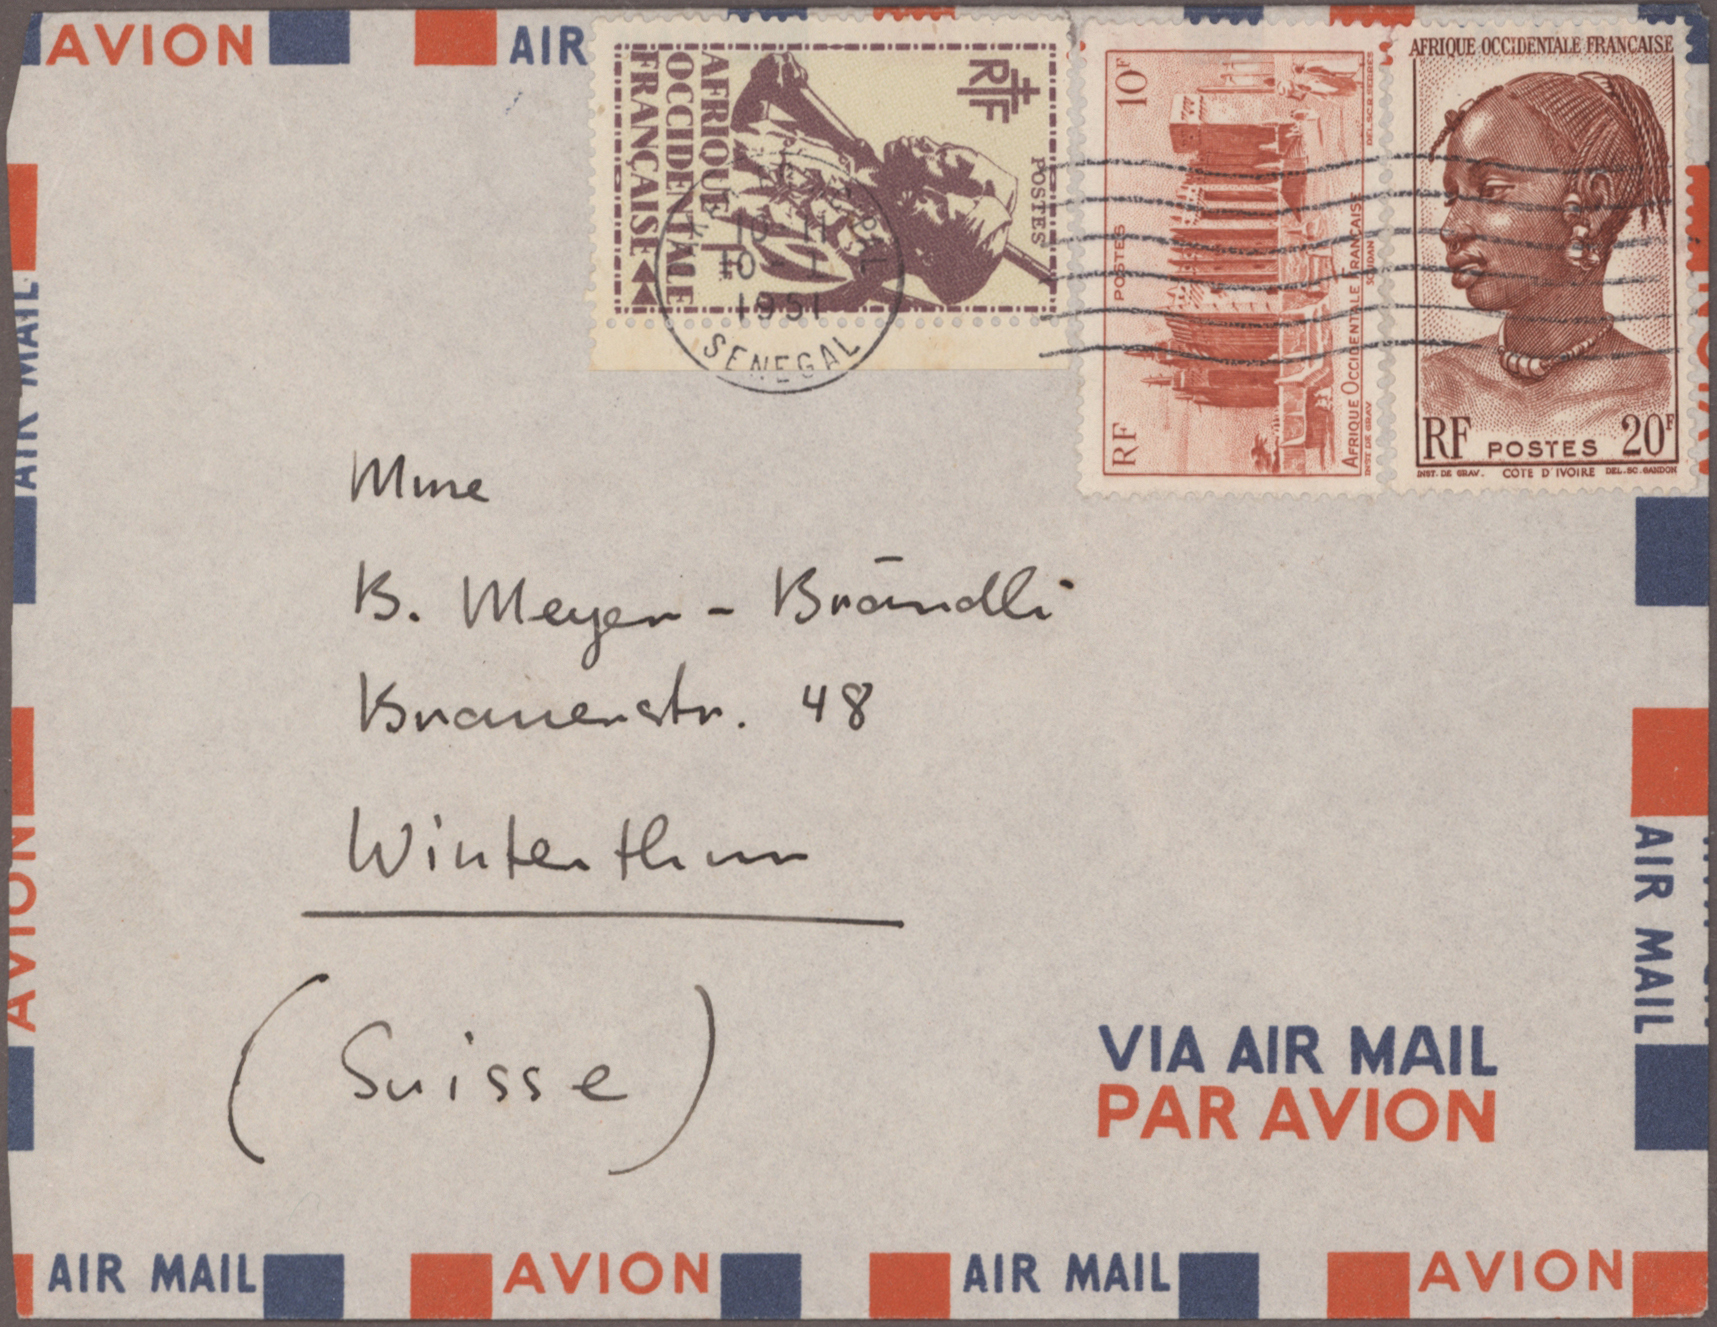 AVION
AIR
AFRIQUE
OCCIDENTALE
FRANÇAISE
RF
POSTES
10-11
10-1
1951
SENEGAL
10F
POSTES
RF
AFRIQUE OCCIDENTALE FRANÇAISE
SOUDAN
INST DE GRAV
AFRIQUE OCCIDENTALE FRANÇAISE
RF POSTES 20F
INST. DE GRAV. COTE D'IVOIRE DEL.-SC. GANDON
AIR MAIL
AVION
Mme
B. Meyer-Brändli
Brauerstr. 48
Winterthur
(Suisse)
AIR MAIL
VIA AIR MAIL
PAR AVION
AIR MAIL
AVION
AIR MAIL
AVION